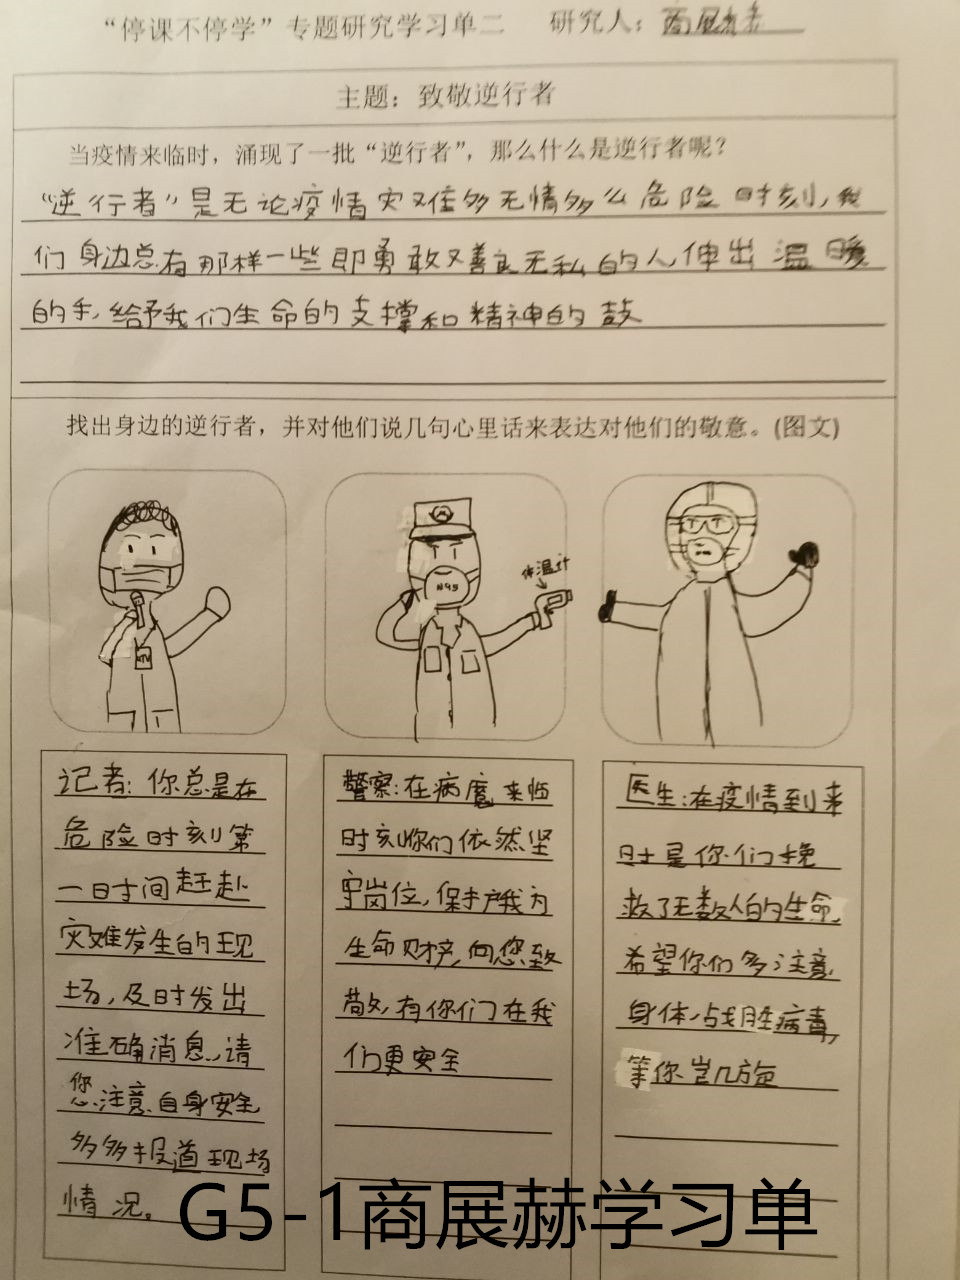 “停课不停学”专题研究学习单二 研究人：商展赫
主题：致敬逆行者
当疫情来临时，涌现了一批“逆行者”，那么什么是逆行者呢？
“逆行者”是无论疫情灾难多无情多么危险时刻，我
们身边总有那样一些即勇敢又善良无私的人伸出温暖
的手，给予我们生命的支撑和精神的鼓
找出身边的逆行者，并对他们说几句心里话来表达对他们的敬意。(图文)
N95
体温计
记者：你总是在
危险时刻第
一时间赶赴
灾难发生的现
场，及时发出
准确消息，请
您注意自身安全
多多报道现场
情况。
警察：在病魔来临
时刻你们依然坚
守岗位，保护我方
生命财产，向您致
敬，有你们在我
们更安全
医生：在疫情到来
时是你们挽
救了无数人的生命，
希望你们多注意
身体，战胜病毒，
等你岂几旋
G5-1商展赫学习单